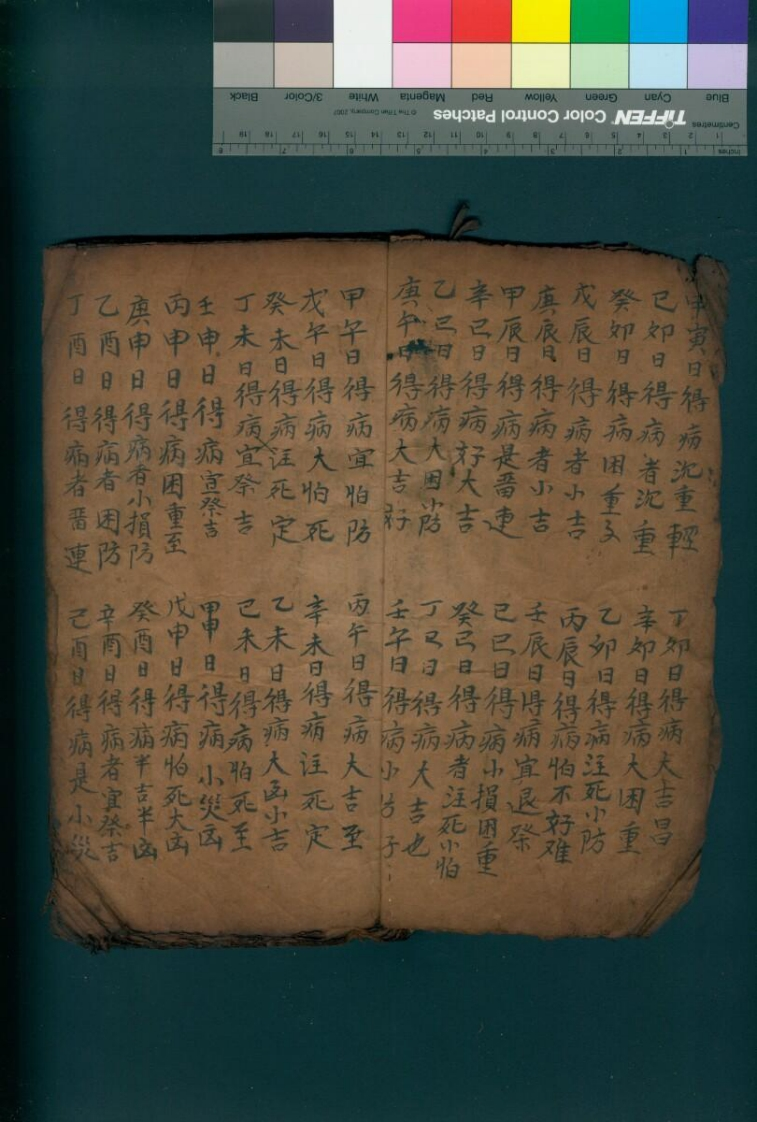 甲寅日得病沉重輕
丁卯日得病大吉昌
己卯日得病者沉重
辛卯日得病大困重
癸卯日得病困重
乙卯日得病注死小防
戊辰日得病者小吉
丙辰日得病怕不好难
庚辰日得病者小吉
壬辰日得病宜退祭
甲辰日得病是畨連
己巳日得病小損困重
辛巳日得病好大吉
癸巳日得病者注死小怕
乙巳日得病大困防
丁巳日得病大吉也
庚午日得病大吉好
壬午日得病小吉
甲午日得病宜怕防
丙午日得病大吉至
戊午日得病大怕死
辛未日得病注死定
癸未日得病注死定
乙未日得病大凶小吉
丁未日得病宜祭吉
己未日得病怕死至
壬申日得病宜祭吉
甲申日得病小災凶
丙申日得病困重至
戊申日得病怕死大凶
庚申日得病者小損防
癸酉日得病半吉半凶
乙酉日得病者困防
辛酉日得病者宜祭吉
丁酉日得病者畨連
己酉日得病是小災
Blue
Cyan
Green
Yellow
Red
Magenta
White
3/Color
Black
TIFFEN Color Control Patches
© The Tiffen Company, 2007
Centimetres
Inches